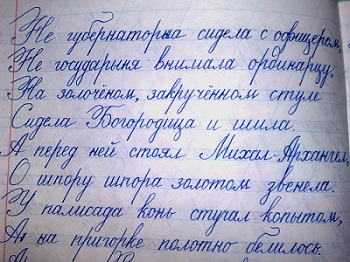 Не губернаторна сидела с офицером,
Не государыня внимала ординарцу,
На золочёном, закрученном стуле
Сидела Богородица и шила.
А перед ней стоял Михал-Архангел,
О шпору шпора золотом звенела.
У палисада конь стучал копытом,
А на пригорке полотно белилось.